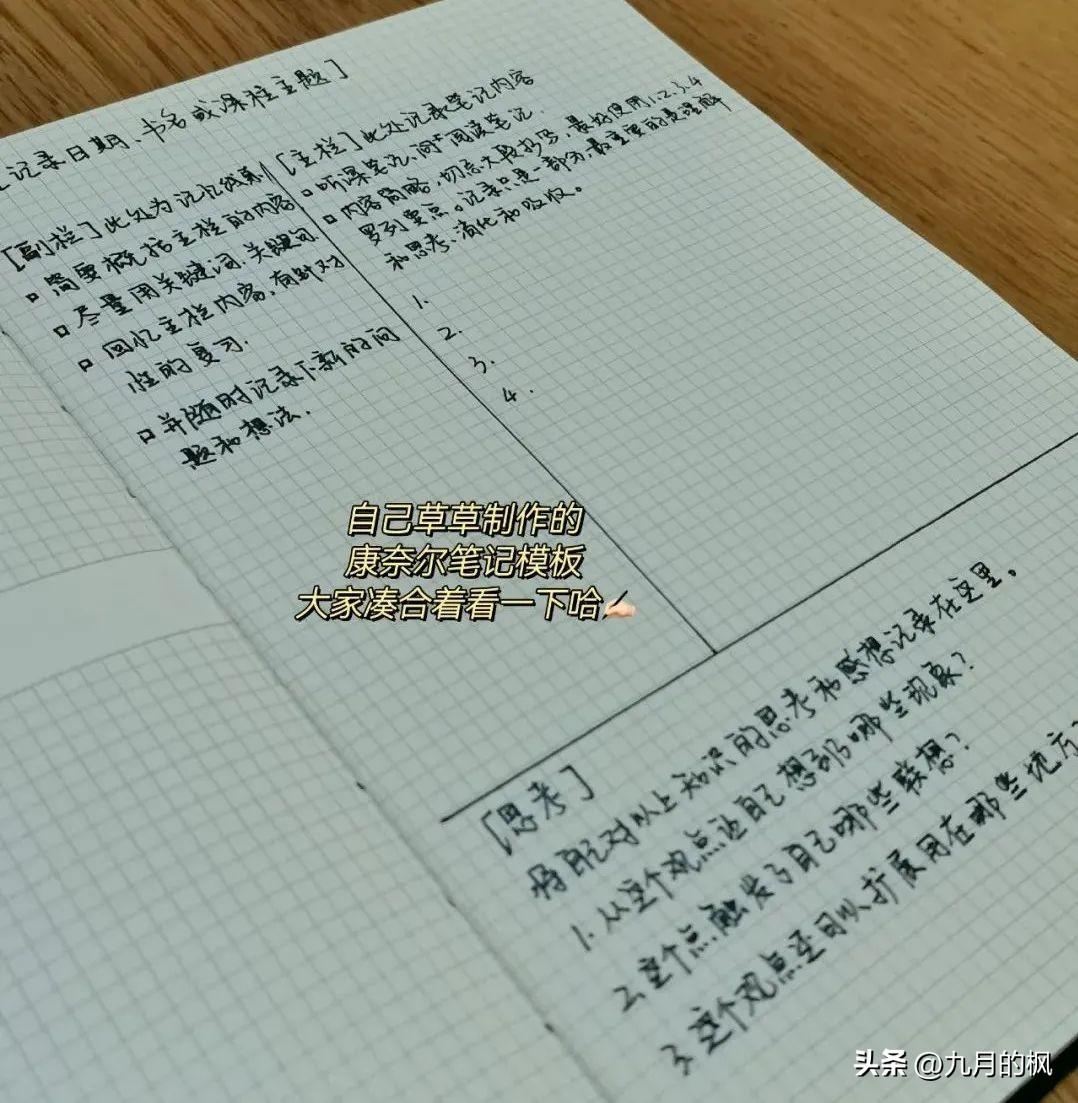 记录日期、书名或课程主题]
[副栏]此处为记忆线索
▫ 简要概括主栏的内容
▫ 尽量用关键词、关键句
▫ 回忆主栏内容,有针对
性的复习.
▫ 并随时记录下新的问
题和想法.
[主栏]此处记录笔记内容
▫ 听课笔记、阅读笔记.
▫ 内容简略,切忌大段抄写,最好使用1.2.3.4
罗列要点。记录只是一部分,最重要的是理解
和思考、消化和吸收。
1.
2.
3.
4.
自己草草制作的
康奈尔笔记模板
大家凑合着看一下哈✍🏻
[思考]
将自己对以上知识的思考和感想记录在这里。
1. 从这个观点让自己想到了哪些现象?
2. 这个点触发了自己哪些联想?
3. 这个观点还可以扩展用在哪些地方?
头条 @九月的枫